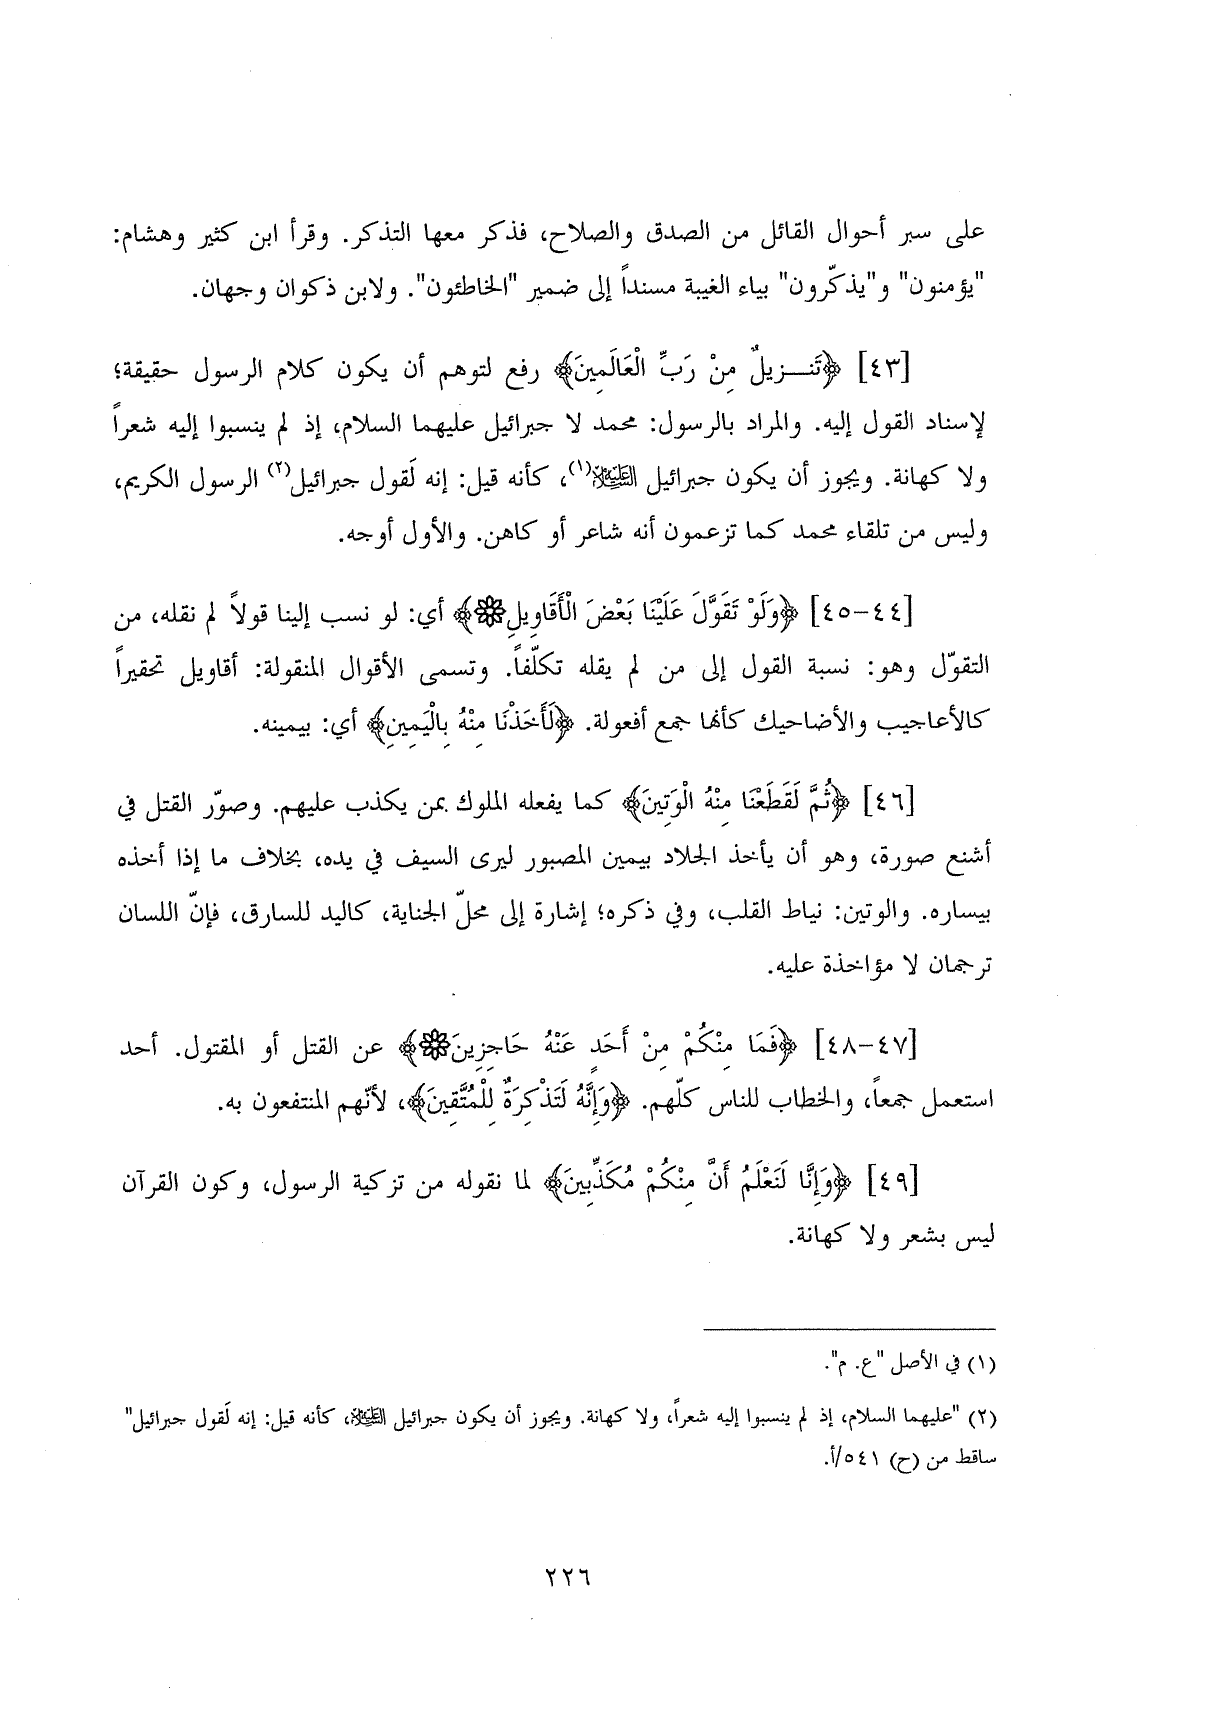 على سبر أحوال القائل من الصدق والصلاح، فذكر معها التذكر. وقرأ ابن كثير وهشام:
"يؤمنون" و"يذكّرون" بياء الغيبة مسنداً إلى ضمير "الخاطئون". ولابن ذكوان وجهان.
[٤٣] ﴿تَنـزِيلٌ مِنْ رَبِّ الْعَالَمِينَ﴾ رفع لتوهم أن يكون كلام الرسول حقيقة؛
لإسناد القول إليه. والمراد بالرسول: محمد لا جبرائيل عليهما السلام، إذ لم ينسبوا إليه شعراً
ولا كهانة. ويجوز أن يكون جبرائيل العَلَيْهِ السَّلَام(١)، كأنه قيل: إنه لَقول جبرائيل(٢) الرسول الكريم،
وليس من تلقاء محمد كما تزعمون أنه شاعر أو كاهن. والأول أوجه.
[٤٤-٤٥] ﴿وَلَوْ تَقَوَّلَ عَلَيْنَا بَعْضَ الْأَقَاوِيلِ۝﴾ أي: لو نسب إلينا قولاً لم نقله، من
التقوّل وهو: نسبة القول إلى من لم يقله تكلّفاً. وتسمى الأقوال المنقولة: أقاويل تحقيراً
كالأعاجيب والأضاحيك كأنها جمع أفعولة. ﴿لَأَخَذْنَا مِنْهُ بِالْيَمِينِ﴾ أي: بيمينه.
[٤٦] ﴿ثُمَّ لَقَطَعْنَا مِنْهُ الْوَتِينَ﴾ كما يفعله الملوك بمن يكذب عليهم. وصوّر القتل في
أشنع صورة، وهو أن يأخذ الجلاد بيمين المصبور ليرى السيف في يده، بخلاف ما إذا أخذه
بيساره. والوتين: نياط القلب، وفي ذكره؛ إشارة إلى محلّ الجناية، كاليد للسارق، فإنّ اللسان
ترجمان لا مؤاخذة عليه.
[٤٧-٤٨] ﴿فَمَا مِنْكُمْ مِنْ أَحَدٍ عَنْهُ حَاجِزِينَ۝﴾ عن القتل أو المقتول. أحد
استعمل جمعاً، والخطاب للناس كلّهم. ﴿وَإِنَّهُ لَتَذْكِرَةٌ لِلْمُتَّقِينَ﴾، لأنّهم المنتفعون به.
[٤٩] ﴿وَإِنَّا لَنَعْلَمُ أَنَّ مِنْكُمْ مُكَذِّبِينَ﴾ لما نقوله من تزكية الرسول، وكون القرآن
ليس بشعر ولا كهانة.
(١) في الأصل "ع. م".
(٢) "عليهما السلام، إذ لم ينسبوا إليه شعراً، ولا كهانة. ويجوز أن يكون جبرائيل العَلَيْهِ السَّلَام، كأنه قيل: إنه لَقول جبرائيل"
ساقط من (ح) ٥٤١/أ.
٢٢٦